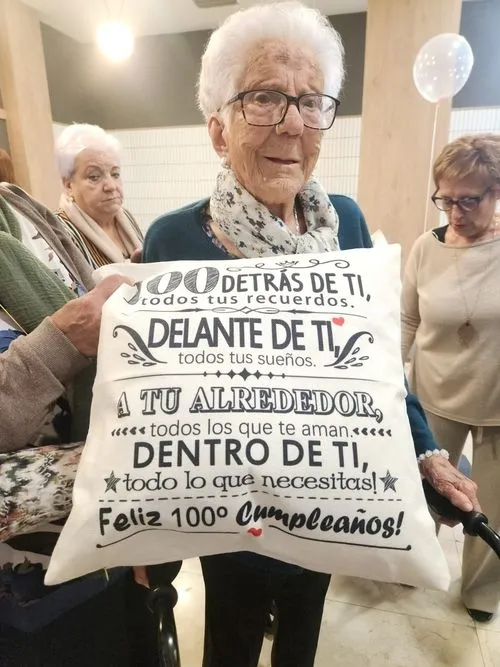 100 DETRÁS DE TI,
todos tus recuerdos.
DELANTE DE TI,
todos tus sueños.
A TU ALREDEDOR,
todos los que te aman.
DENTRO DE TI,
todo lo que necesitas!
Feliz 100º Cumpleaños!